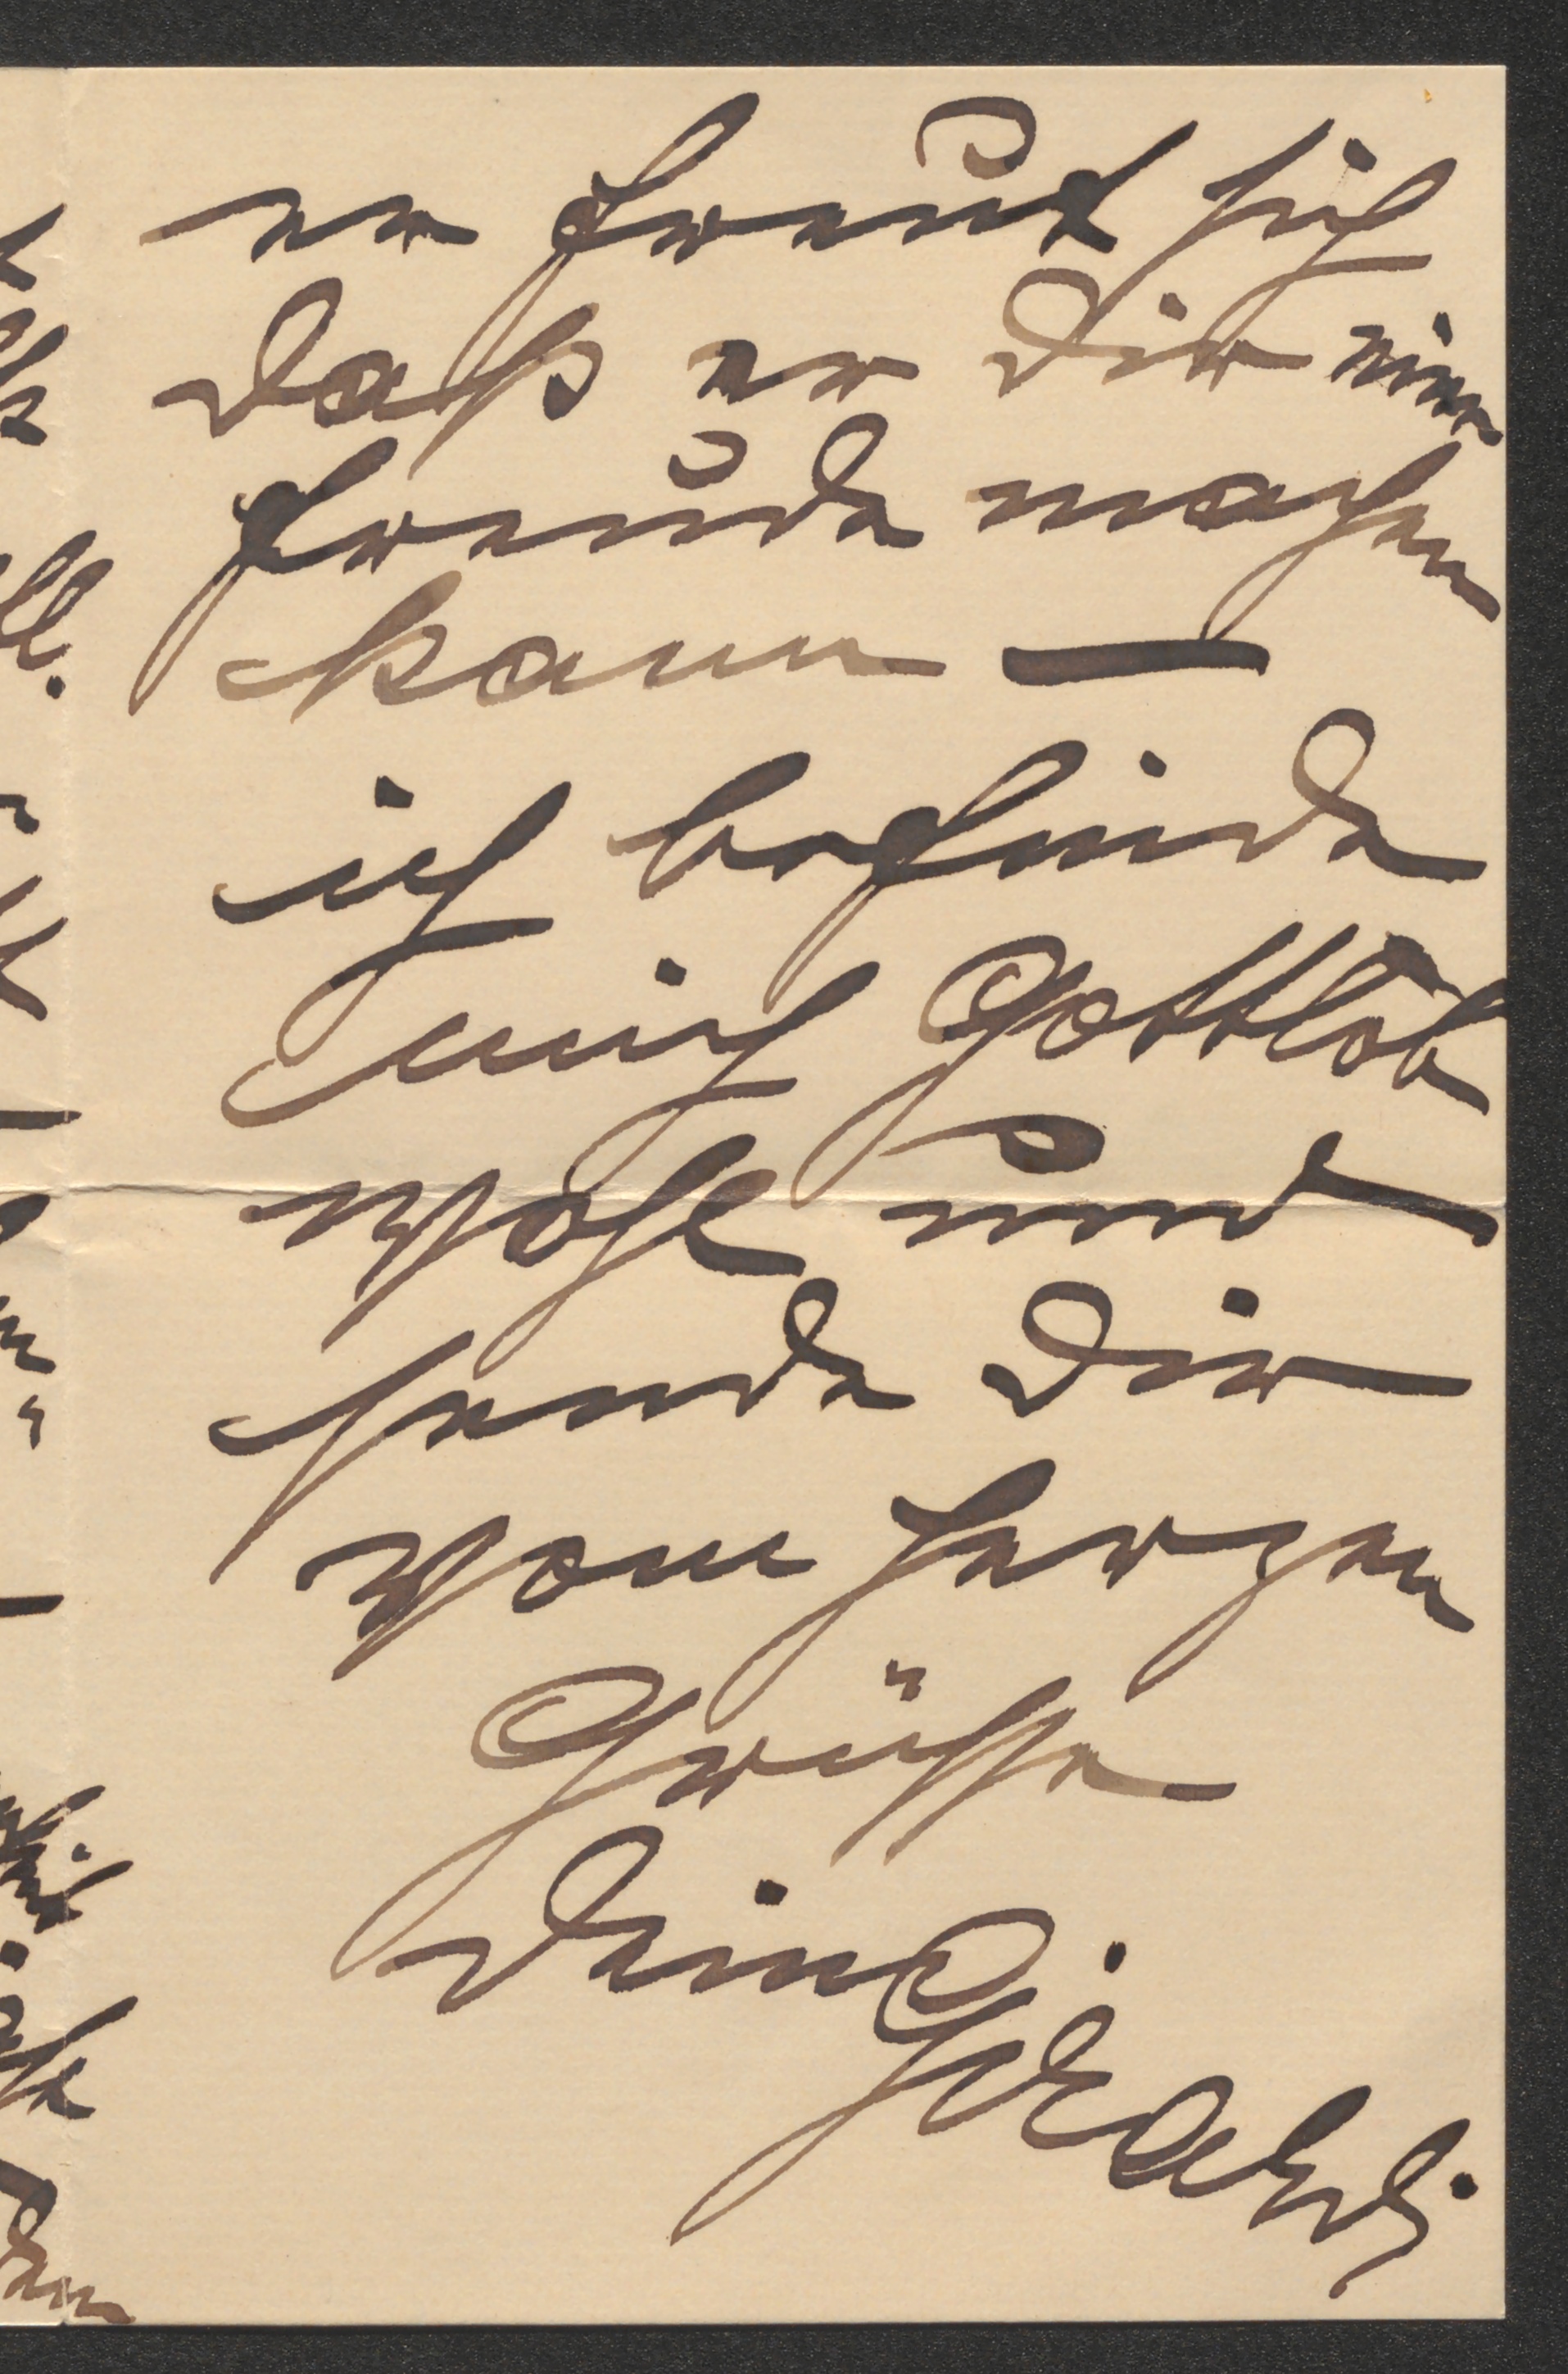 er freut sich
daß er Dir eine
Freude machen
kann —
ich befinde
mich Gottlob
wohl und
sende Dir
vom Herzen
Grüsse
Dein Girardi